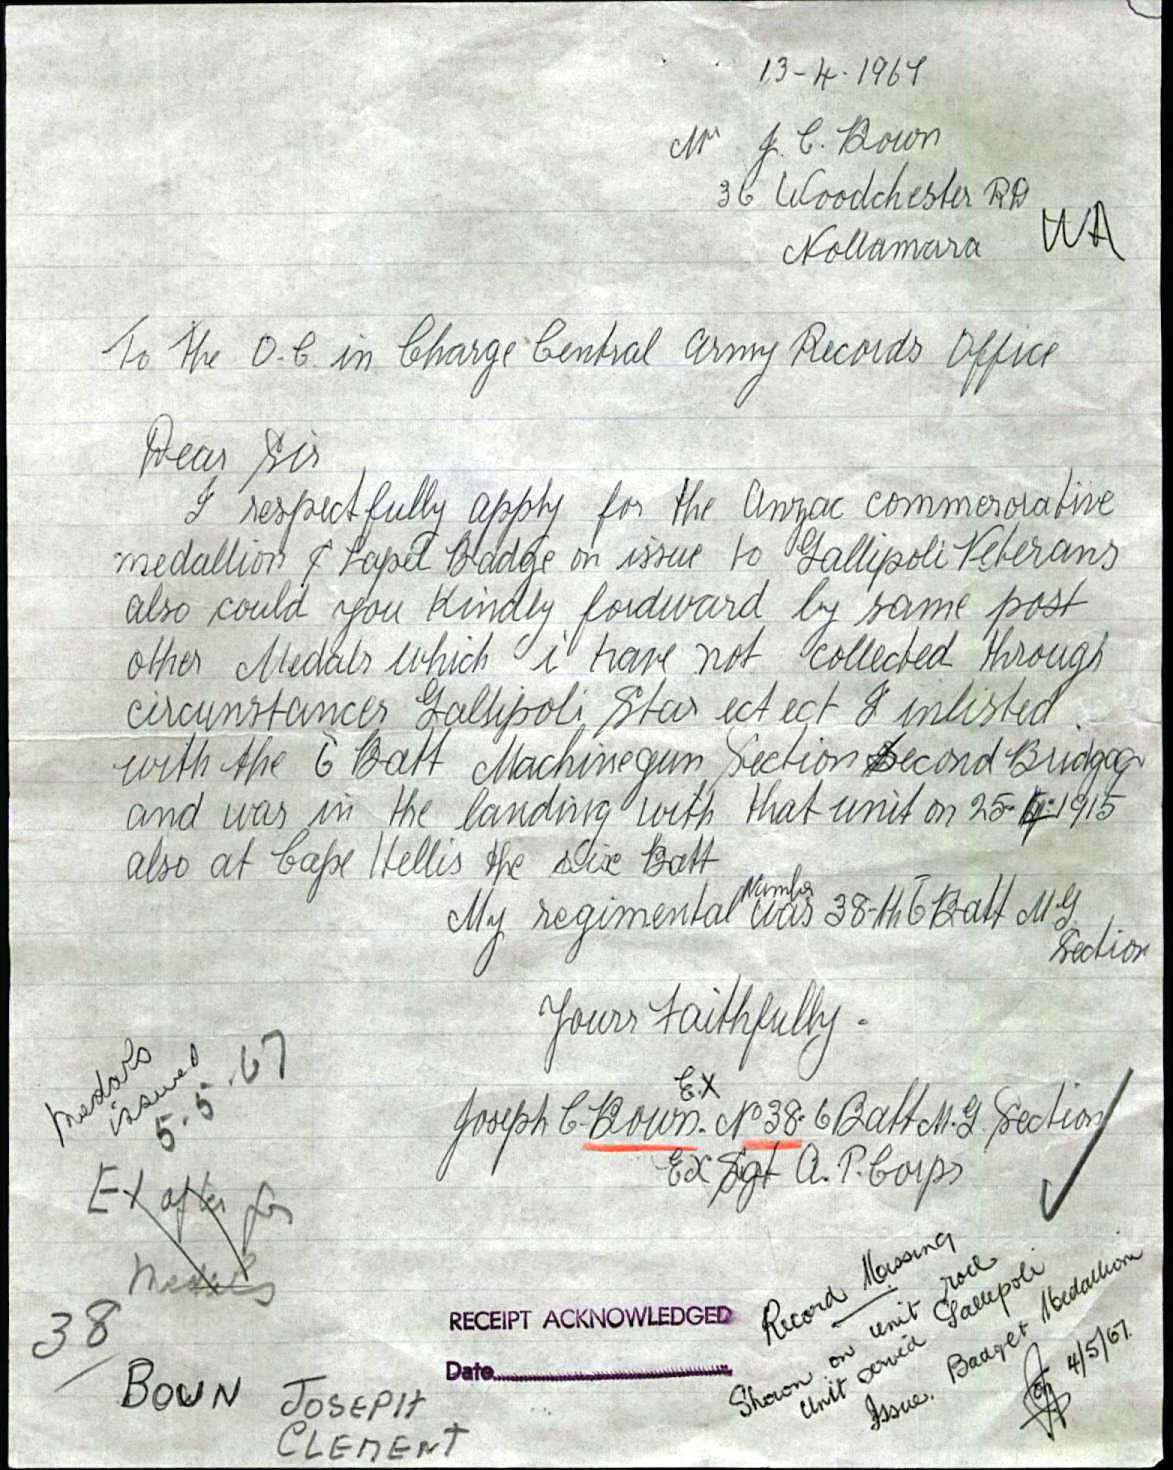 13-4-1967
Mr J. C. Bown
36 Woodchester RD
Nollamara WA
To The O.C. in Charge Central Army Records Office
Dear Sir
I respectfully apply for the Anzac commerorative
medallion & Lapel Badge on issue to Gallipoli Veterans
also could you Kindly fordward by same post
other Medals which i have not collected through
circumstances Gallipoli Star ect ect I inlisted
with the 6 Batt Machinegun Section Second Bridgag
and was in the landing with that unit on 25-4-1915
also at Cape Hellis the Six Batt
My regimental Number was 38-th 6 Batt M.G.
Section
Yours Faithfully.
Joseph C. Bown. Ex No 38. 6 Batt M.G. Section
Ex Sgt A. P. Corps
Medals
issued
5.5.67
Ex after for
Medals
38
BOWN JOSEPH
CLEMENT
RECEIPT ACKNOWLEDGED
Date
Record Missing
Shown on unit roll
Unit served Gallipoli
Issue. Badge & Medallion
4/5/67.